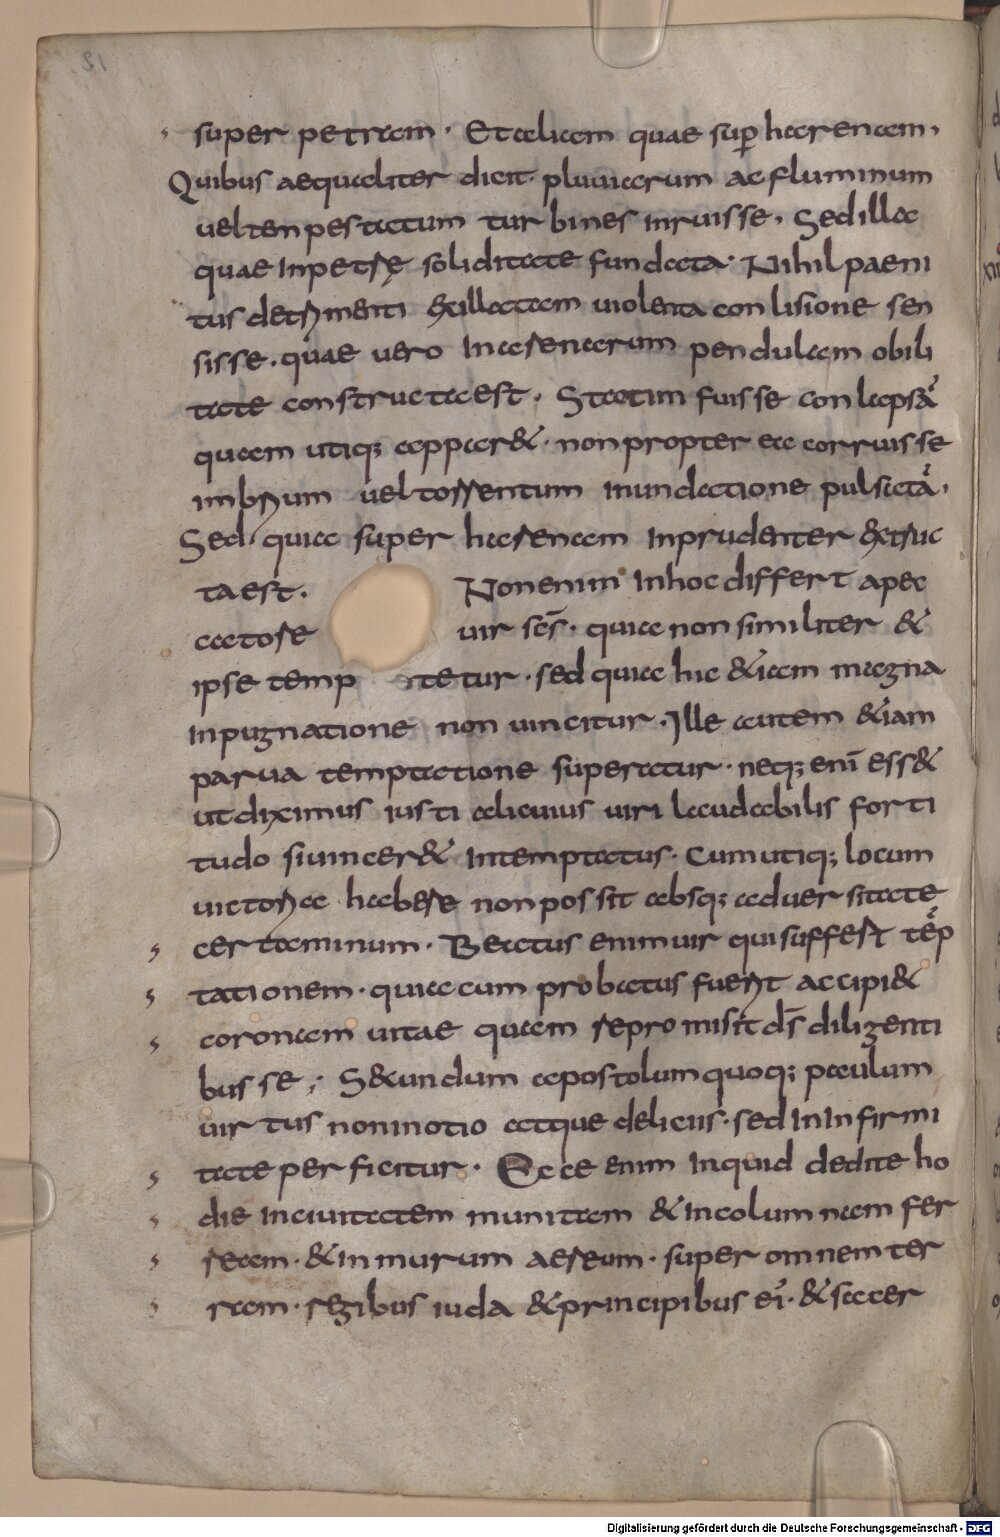 super petram. Et aliam quae sup̄ harenam,
Quibus aequaliter dicit pluuiarum ac fluminum
uel tempestatum turbines inruisse, Sed illa
quae in petrę soliditate fundata. Nihil paeni
tus detrimenti ex illa tam uiolenta conlisione sen
sisse. quae uero in arenarum pendulam obili
tate constructa est. Statim fuisse conlapsā
quam utiq; apparet. non propter ea corruisse
imbrium uel torrentum inundatione pulsatā,
Sed quia super harenam inprudenter extruc
ta est. Non enim in hoc differt a pec
catore uir scs̄. quia non similiter &
ipse temptetur. sed quia hic & iam magna
inpugnatione non uincitur. Ille autem & iam
parua temptatione superatur. neq; enī ess&
ut diximus iusti alicuius uiri laudabilis forti
tudo si uincer& intemptatus. Cum utiq; locum
uictoria habere non possit absq; aduersitate
certaminum. Beatus enim uir qui suffert tēp
tationem. quia cum probatus fuerit accipi&
coronam uitae quam repromisit ds̄ diligenti
bus se; Secundum apostolum quoq; paulum
uirtus non in otio atque deliciis. sed in infirmi
tate perficitur. Ecce enim inquid dedi te ho
die in ciuitatem munitam & in columnam fer
ream. & in murum aereum. super omnem ter
ram. regibus iuda & principibus eī. & sacer
81
Digitalisierung gefördert durch die Deutsche Forschungsgemeinschaft - DFG